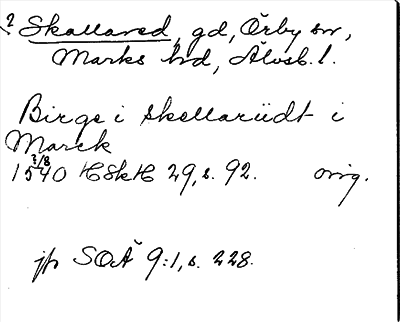 ? Skallared, gd, Örby sn,
Marks hd, Älvsb. l.
Birge i skellariidt i
Marck
7/8
1540 HSkH 29, s. 92. orig.
jfr SOÄ 9:1, s. 228.